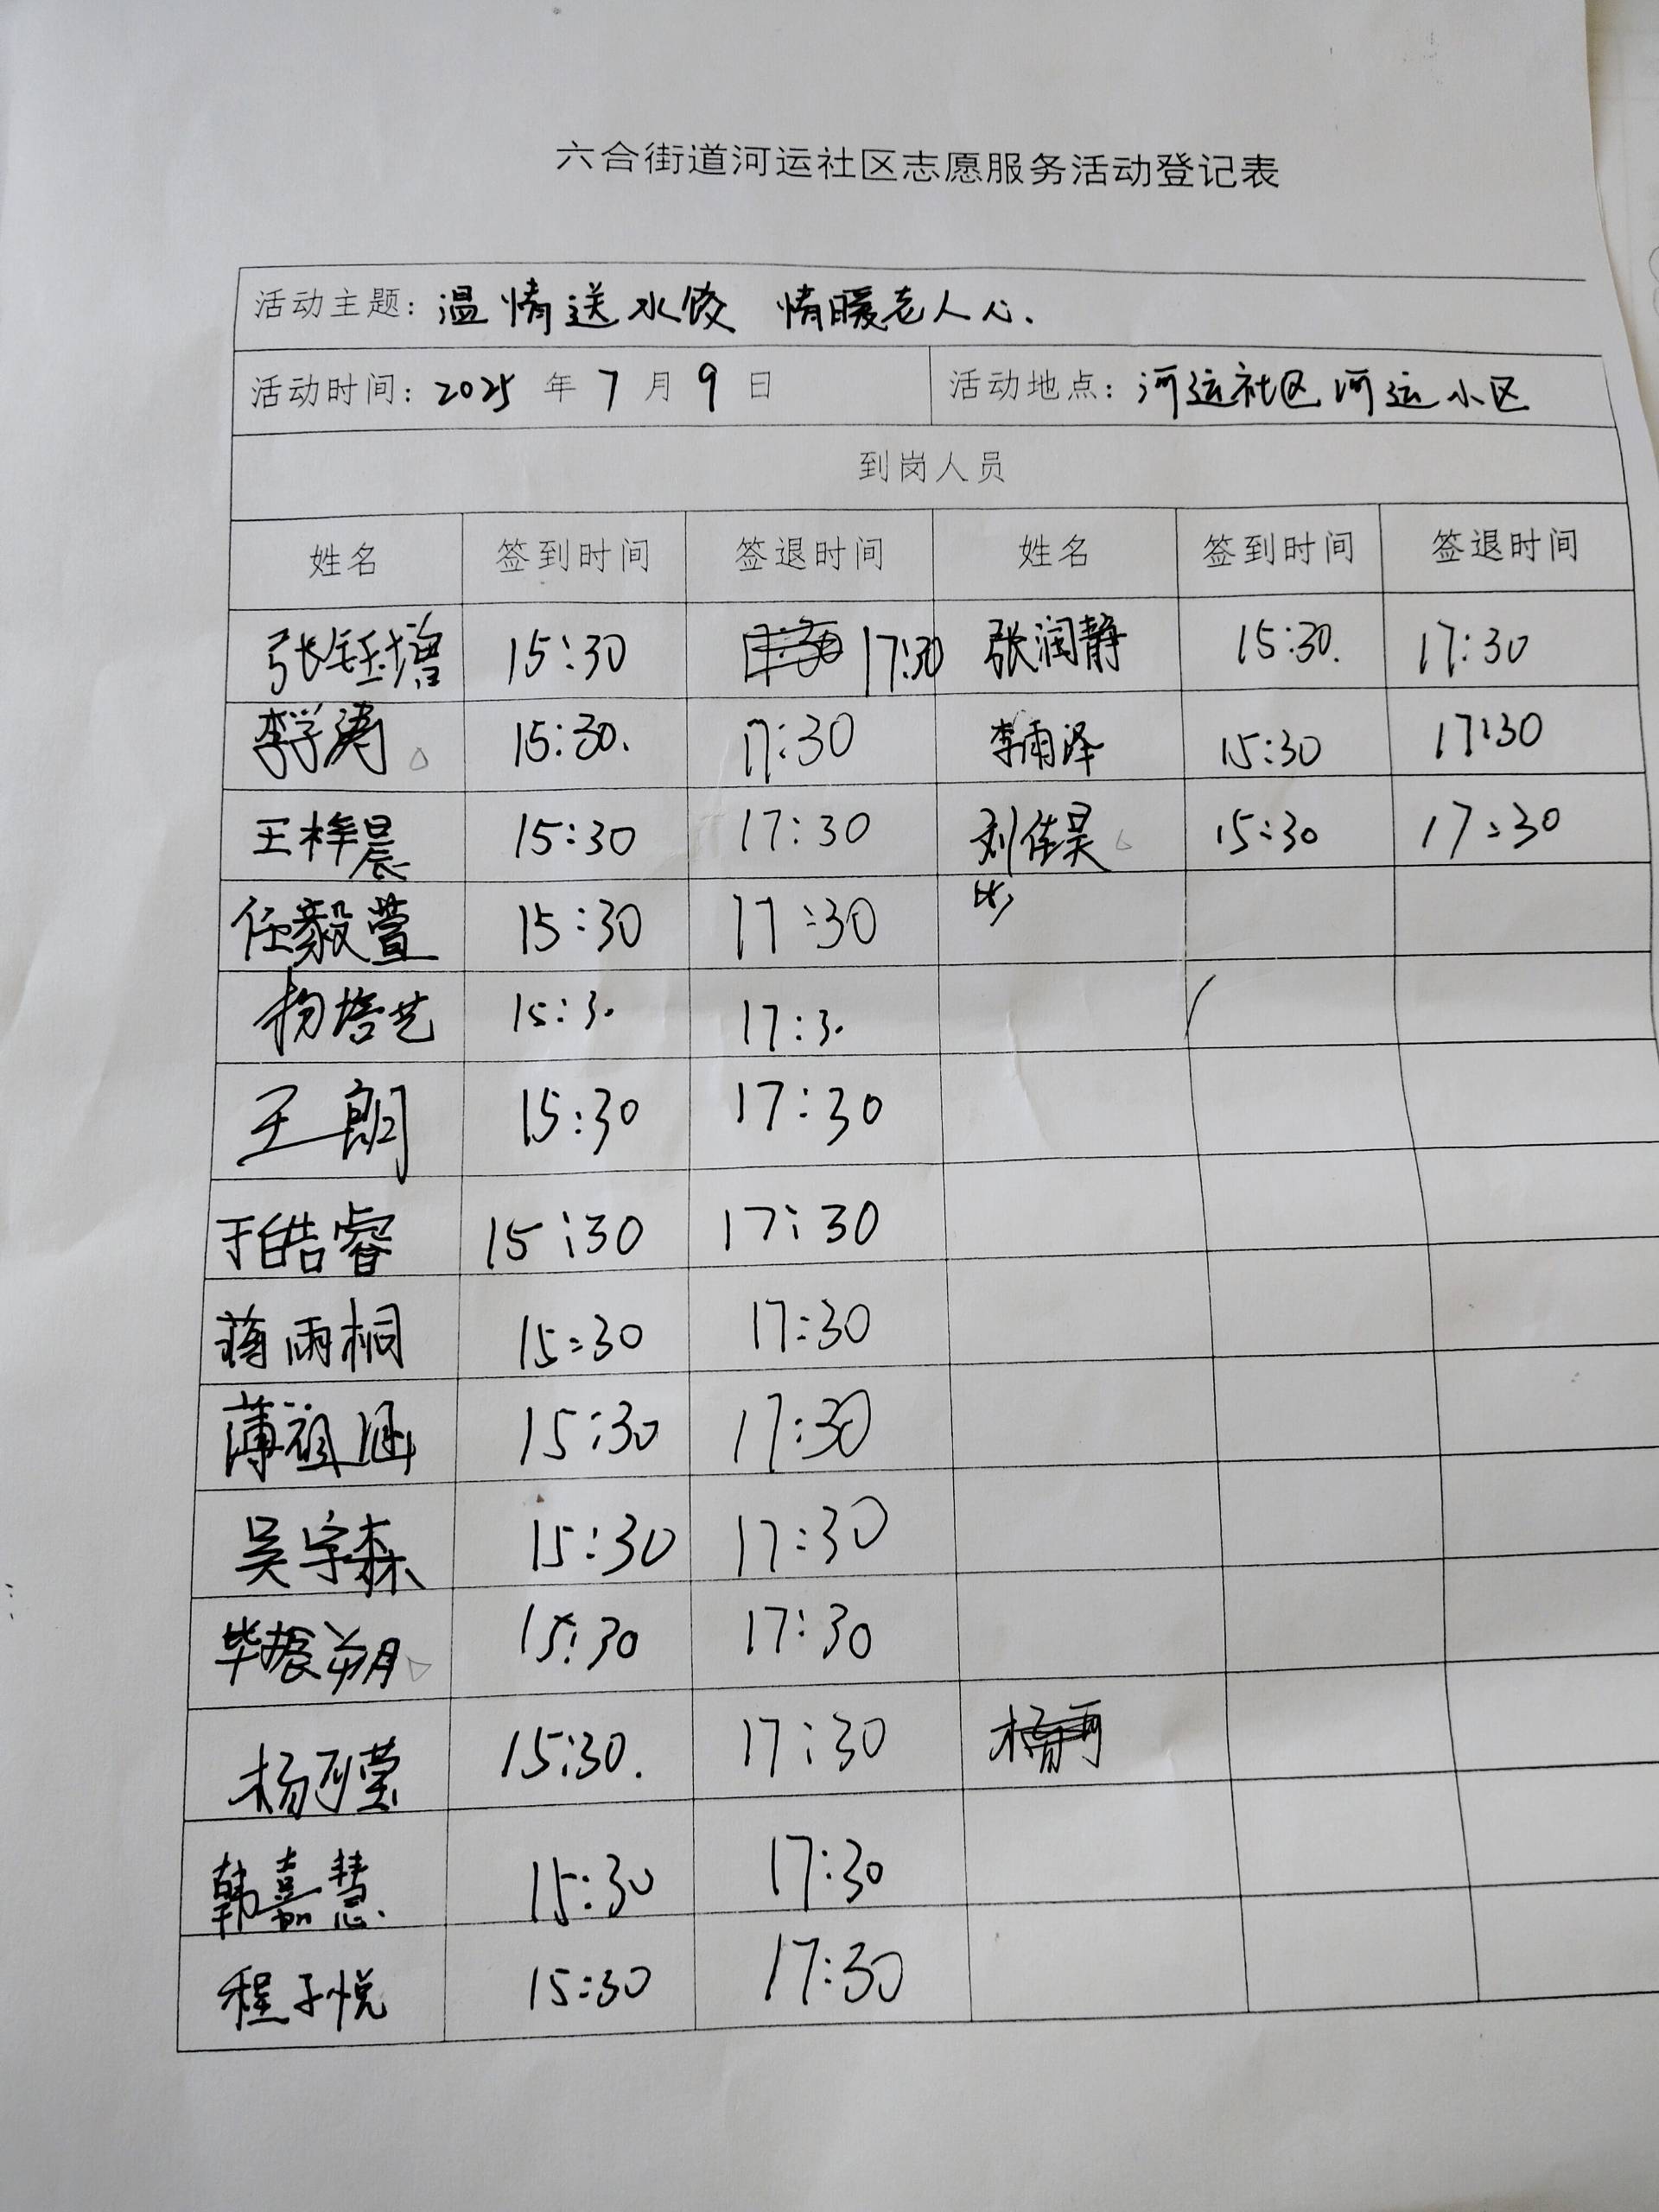 六合街道河运社区志愿服务活动登记表
活动主题：温情送水饺 情暖老人心.
活动时间：2025年7月9日 活动地点：河运社区河运小区
到岗人员
姓名 签到时间 签退时间 姓名 签到时间 签退时间
张钰增 15:30 17:30 张润静 15:30. 17:30
李学涛 15:30. 17:30 李雨泽 15:30 17:30
王梓晨 15:30 17:30 刘佳昊 15:30 17:30
任毅萱 15:30 17:30
杨培艺 15:30 17:30
王朗 15:30 17:30
于皓睿 15:30 17:30
蒋雨桐 15:30 17:30
薄祖涵 15:30 17:30
吴宇森 15:30 17:30
毕振朔 15:30 17:30
杨可莹 15:30. 17:30
韩嘉慧. 15:30 17:30
程子悦 15:30 17:30